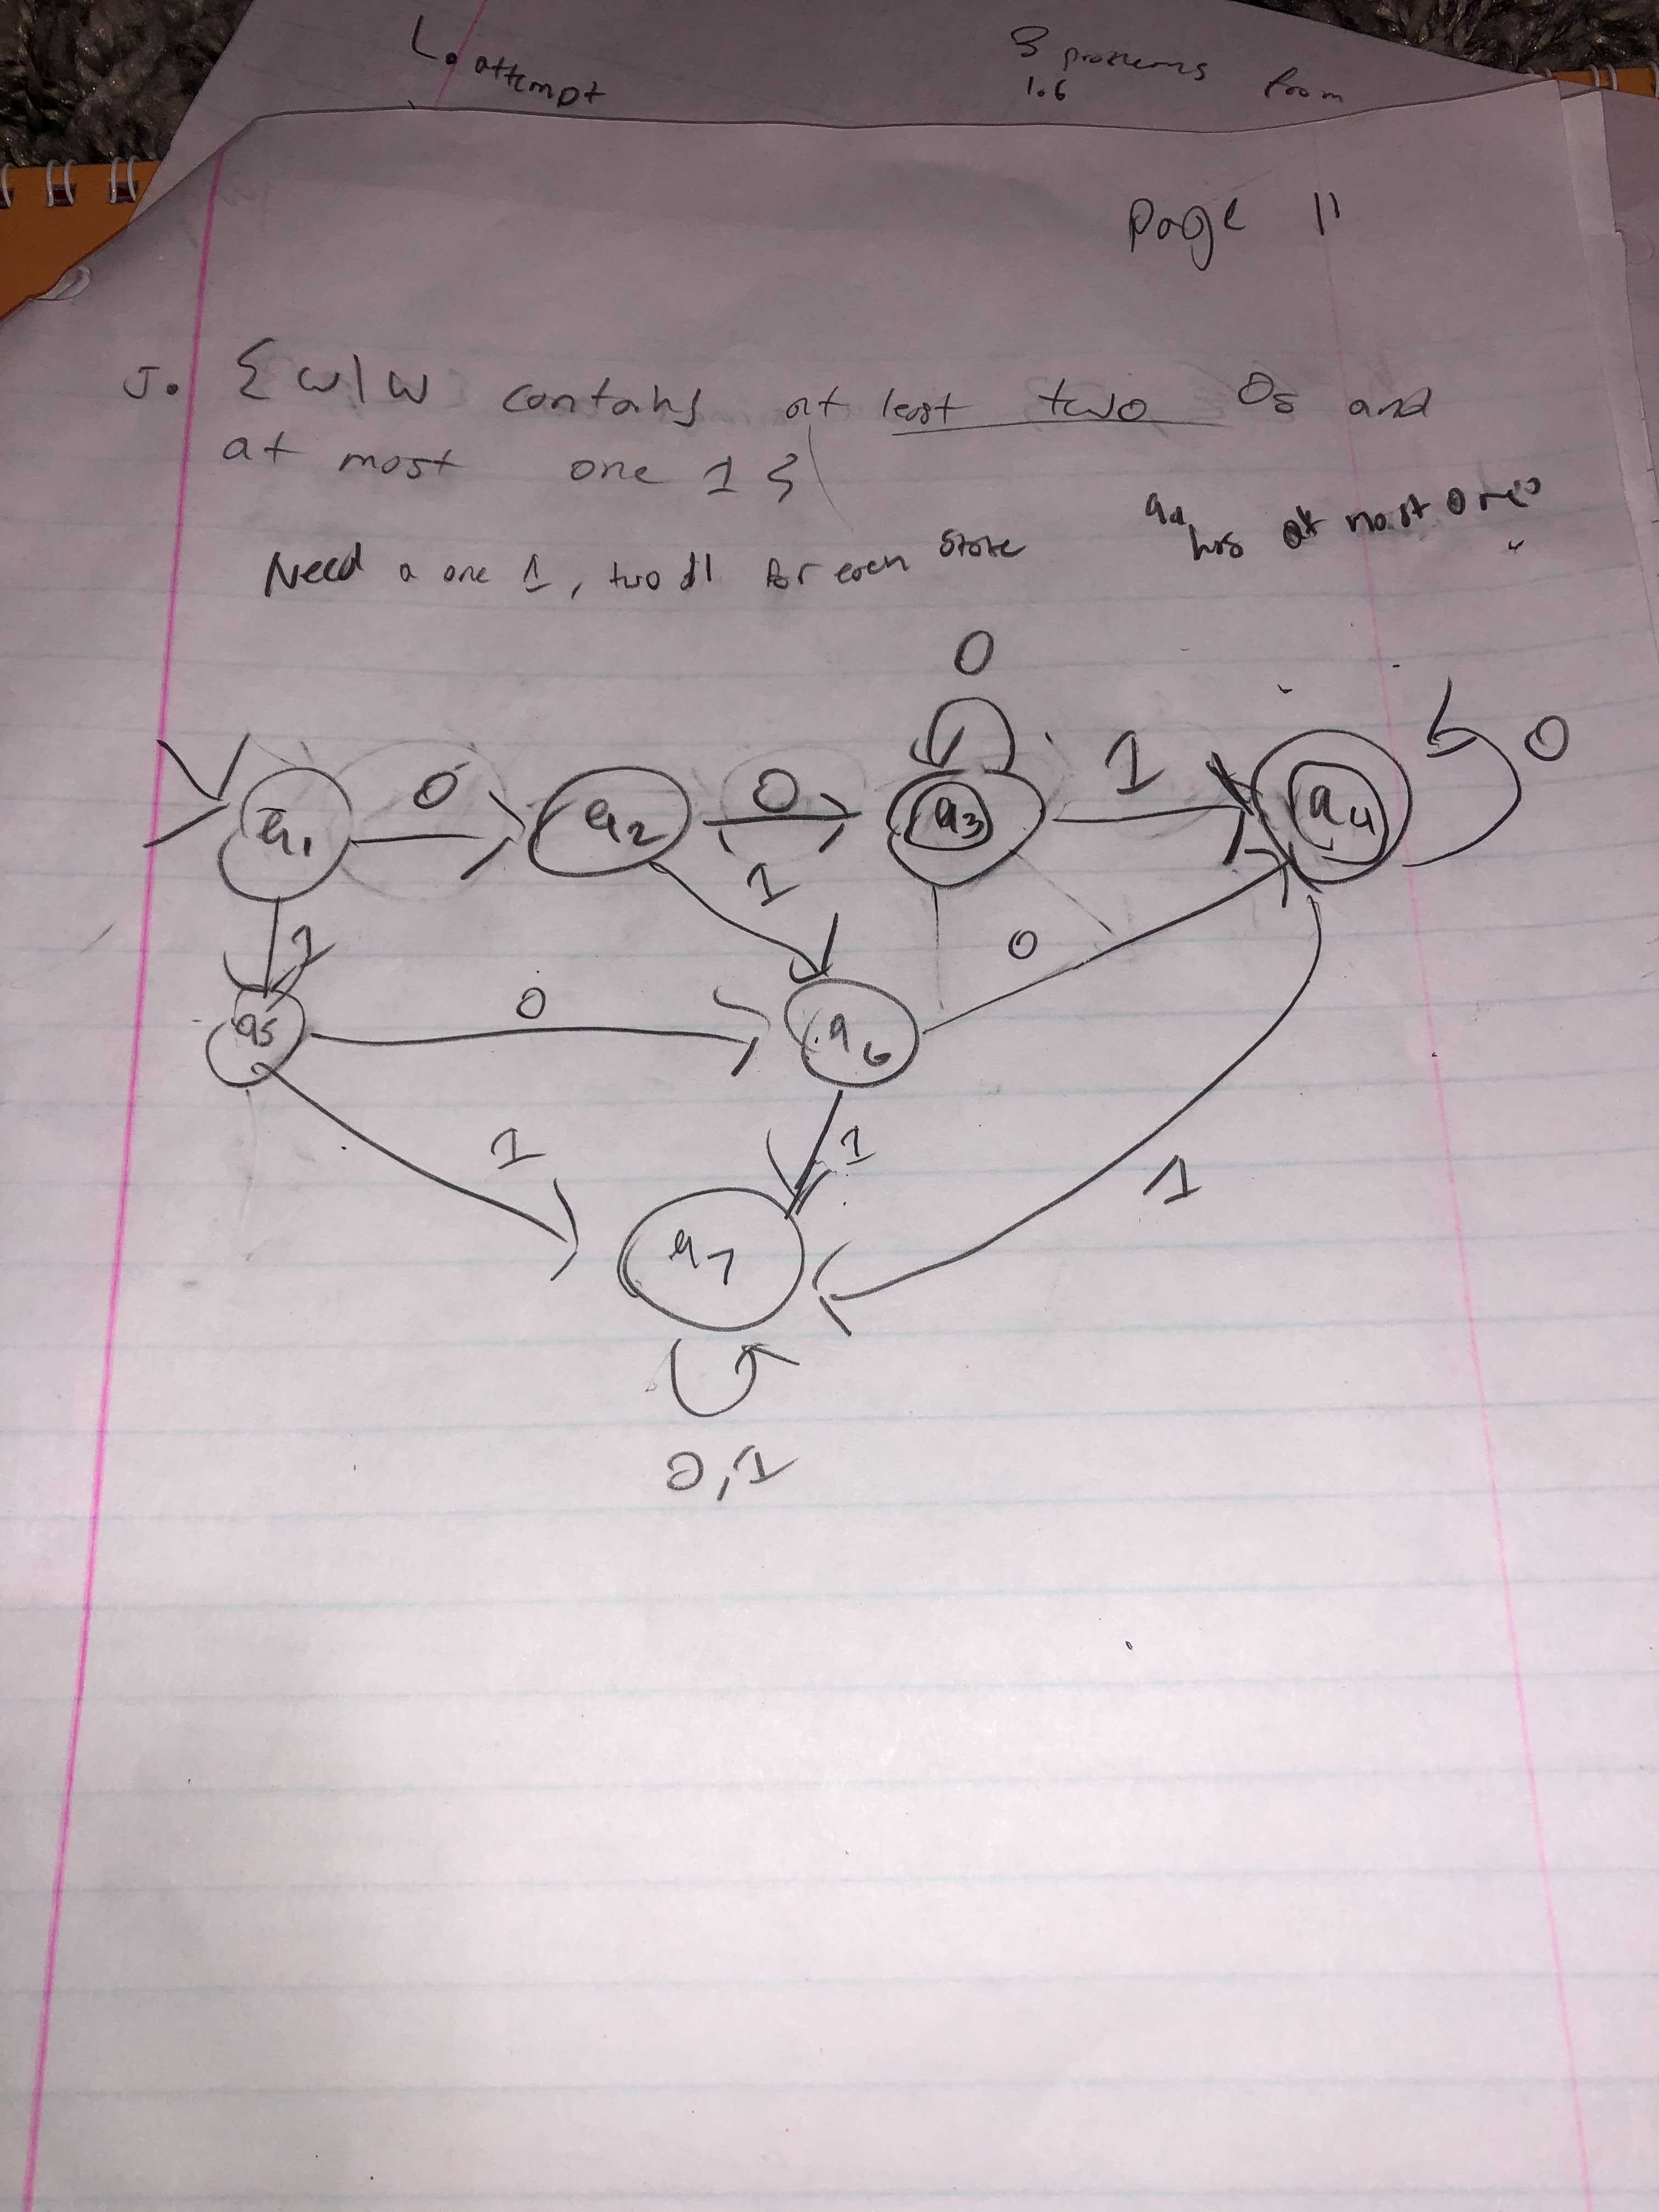 L. attempt
3 problems from
1.6
Page 11
J. { w | w contains at least two 0s and
at most one 1 }
Need a one 1, two for each state
q4 has at most one
0
0 0 1 0
q1 q2 q3 q4
1 1
0 0
q5 q6
1 1 1
q7
0,1